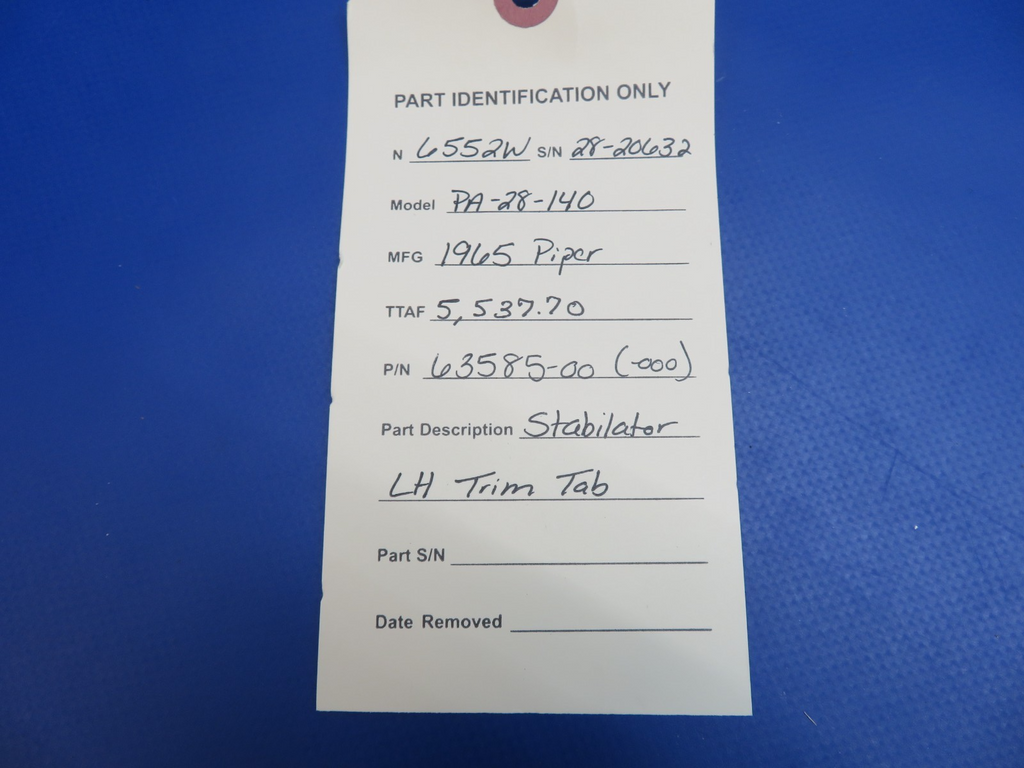 PART IDENTIFICATION ONLY
N 6552W S/N 28-20632
Model PA-28-140
MFG 1965 Piper
TTAF 5,537.70
P/N 63585-00 (-000)
Part Description Stabilator
LH Trim Tab
Part S/N
Date Removed